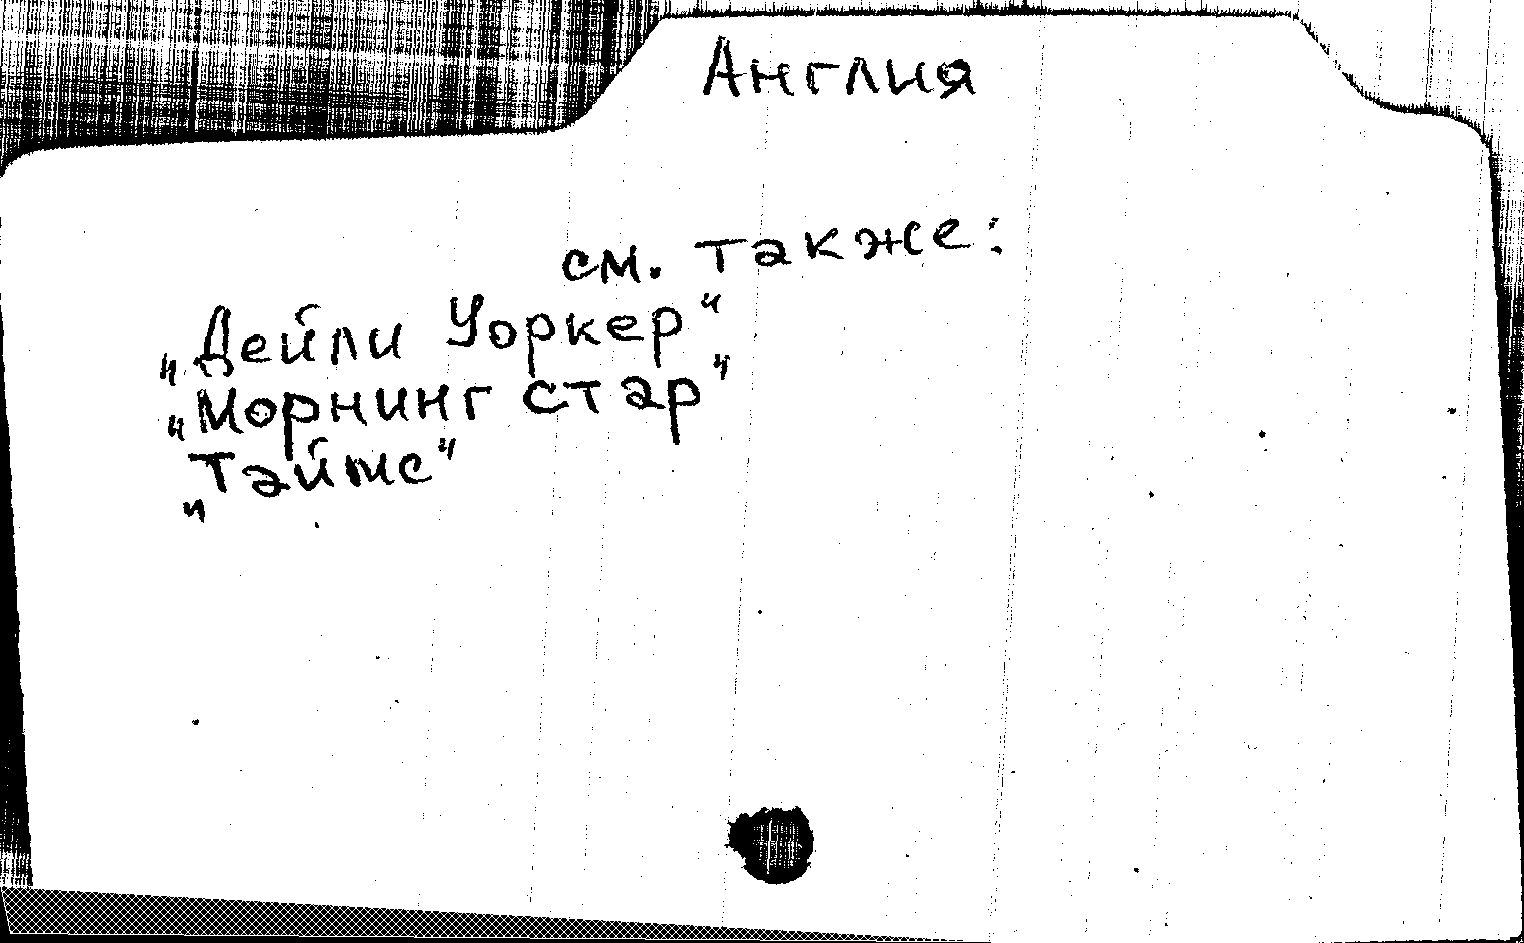 Англия
см. также:
„Дейли Уоркер"
„Морнинг стар"
„Таймс"